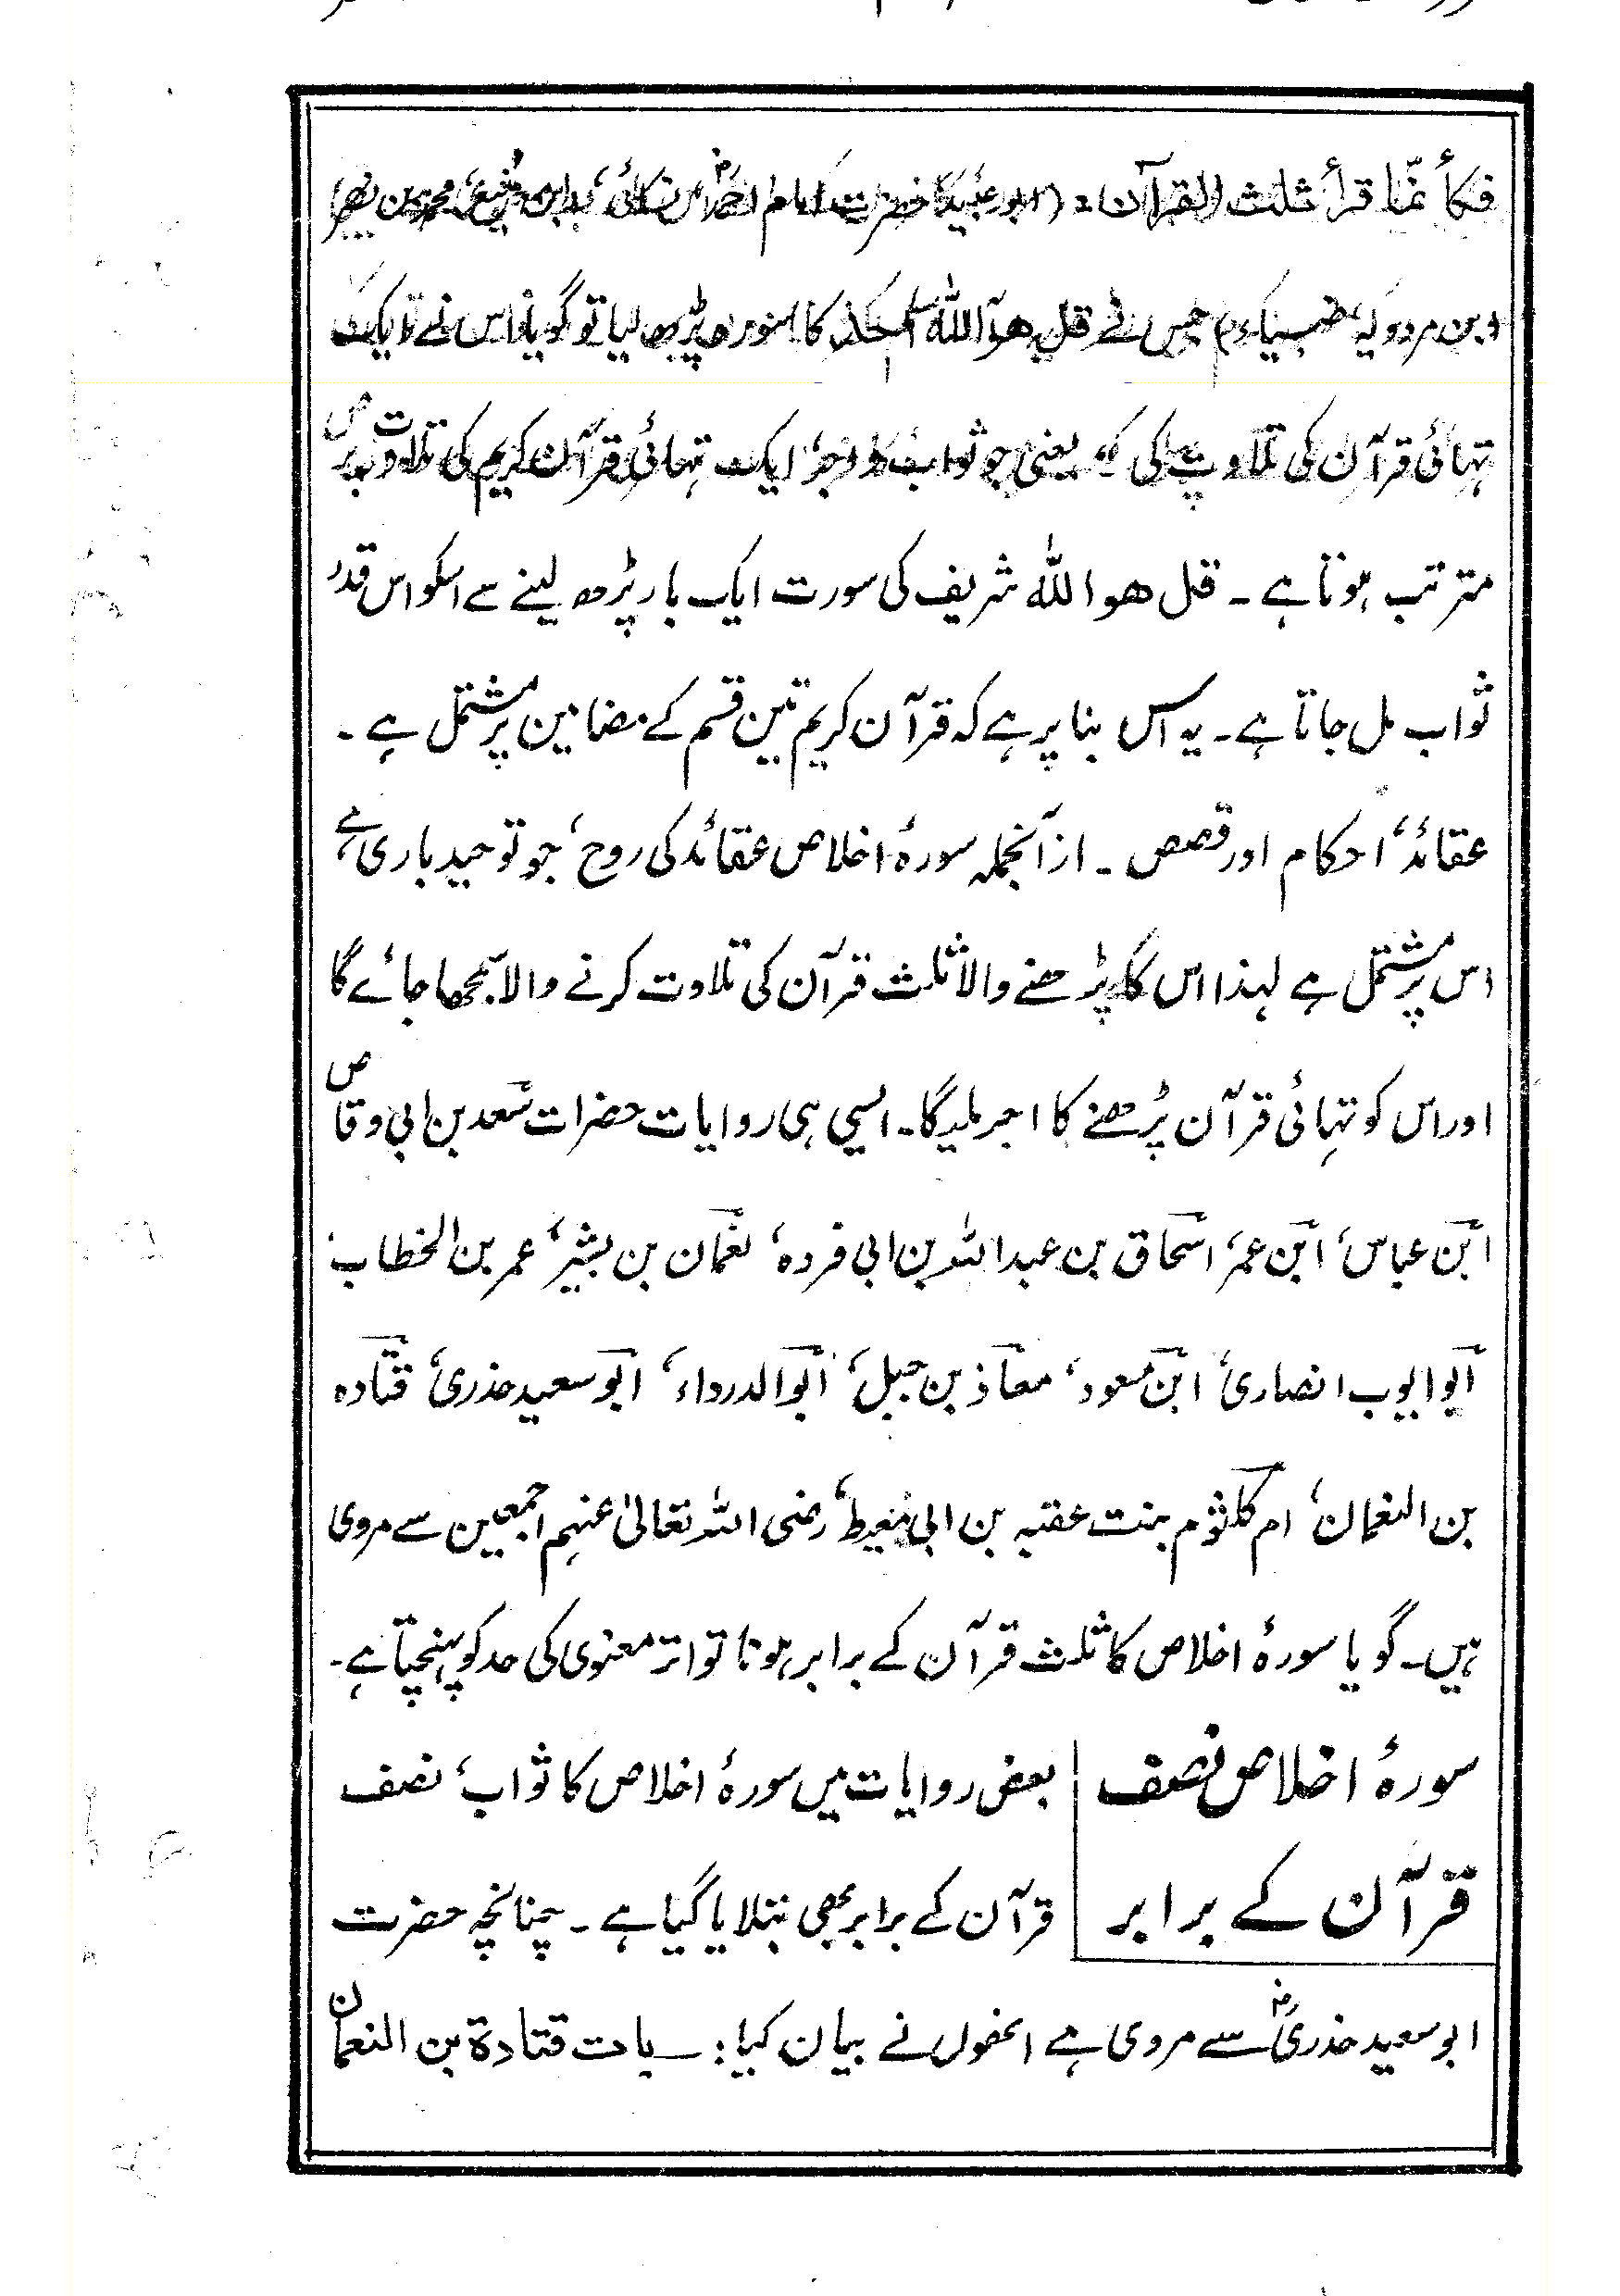 فكأنّما قرأ ثلث القرآن۔ (ابو عبید، حضرت امام احمدؒ، نسائی، ابن منیع، محمد بن نصر
ابن مردویہ، ضیاء) جس نے قل ھو اللہ احد کا سورہ پڑھ لیا تو گویا اس نے ایک
تہائی قرآن کی تلاوت کی۔ یعنی جو ثواب و اجر ایک تہائی قرآن کریم کی تلاوت پر
مترتب ہوتا ہے۔ قل ھو اللہ شریف کی سورت ایک بار پڑھ لینے سے اسکو اس قدر
ثواب مل جاتا ہے۔ یہ اس بنا پر ہے کہ قرآن کریم تین قسم کے مضامین پر مشتمل ہے۔
عقائد، احکام اور قصص۔ ازآنجملہ سورۂ اخلاص عقائد کی روح، جو توحید باری ہے
اس پر مشتمل ہے لہذا اس کا پڑھنے والا ثلث قرآن کی تلاوت کرنے والا سمجھا جائے گا
اور اس کو تہائی قرآن پڑھنے کا اجر ملیگا۔ ایسی ہی روایات حضرات سعد بن ابی وقاص
ابن عباس، ابن عمر، اسحاق بن عبداللہ بن ابی فردہ، نعمان بن بشیر، عمر بن الخطاب
ابو ایوب انصاری، ابن مسعود، معاذ بن جبل، ابوالدرداء، ابو سعید خدری، قتادہ
بن النعمان، ام کلثوم بنت عقبہ بن ابی معیط، رضی اللہ تعالیٰ عنہم اجمعین سے مروی
ہیں۔ گویا سورۂ اخلاص کا ثلث قرآن کے برابر ہونا تواتر معنوی کی حد کو پہنچتا ہے۔
سورۂ اخلاص نصف
قرآن کے برابر
بعض روایات میں سورۂ اخلاص کا ثواب، نصف
قرآن کے برابر بھی بتلایا گیا ہے۔ چنانچہ حضرت
ابو سعید خدریؓ سے مروی ہے انھوں نے بیان کیا: بات قتادة بن النعمان